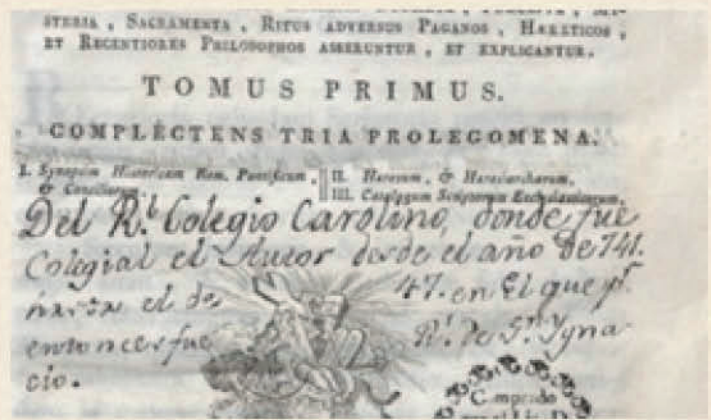 STERIA, SACRAMENTA, RITUS ADVERSUS PAGANOS, HAERETICOS,
ET RECENTIORES PHILOSOPHOS ASSERUNTUR, ET EXPLICANTUR.
TOMUS PRIMUS.
COMPLECTENS TRIA PROLEGOMENA.
I. Synopsim Historicam Rom. Pontificum, & Conciliorum.
II. Haereseon, & Haresiarcharum,
III. Catalogum Scriptorum Ecclesiasticorum.
Del R.l Colegio Carolino, donde fue
Colegial el Autor desde el año de 741.
hasta el de 47. en el que pr.
entonces fue R.l de Sn. Ygna
cio.